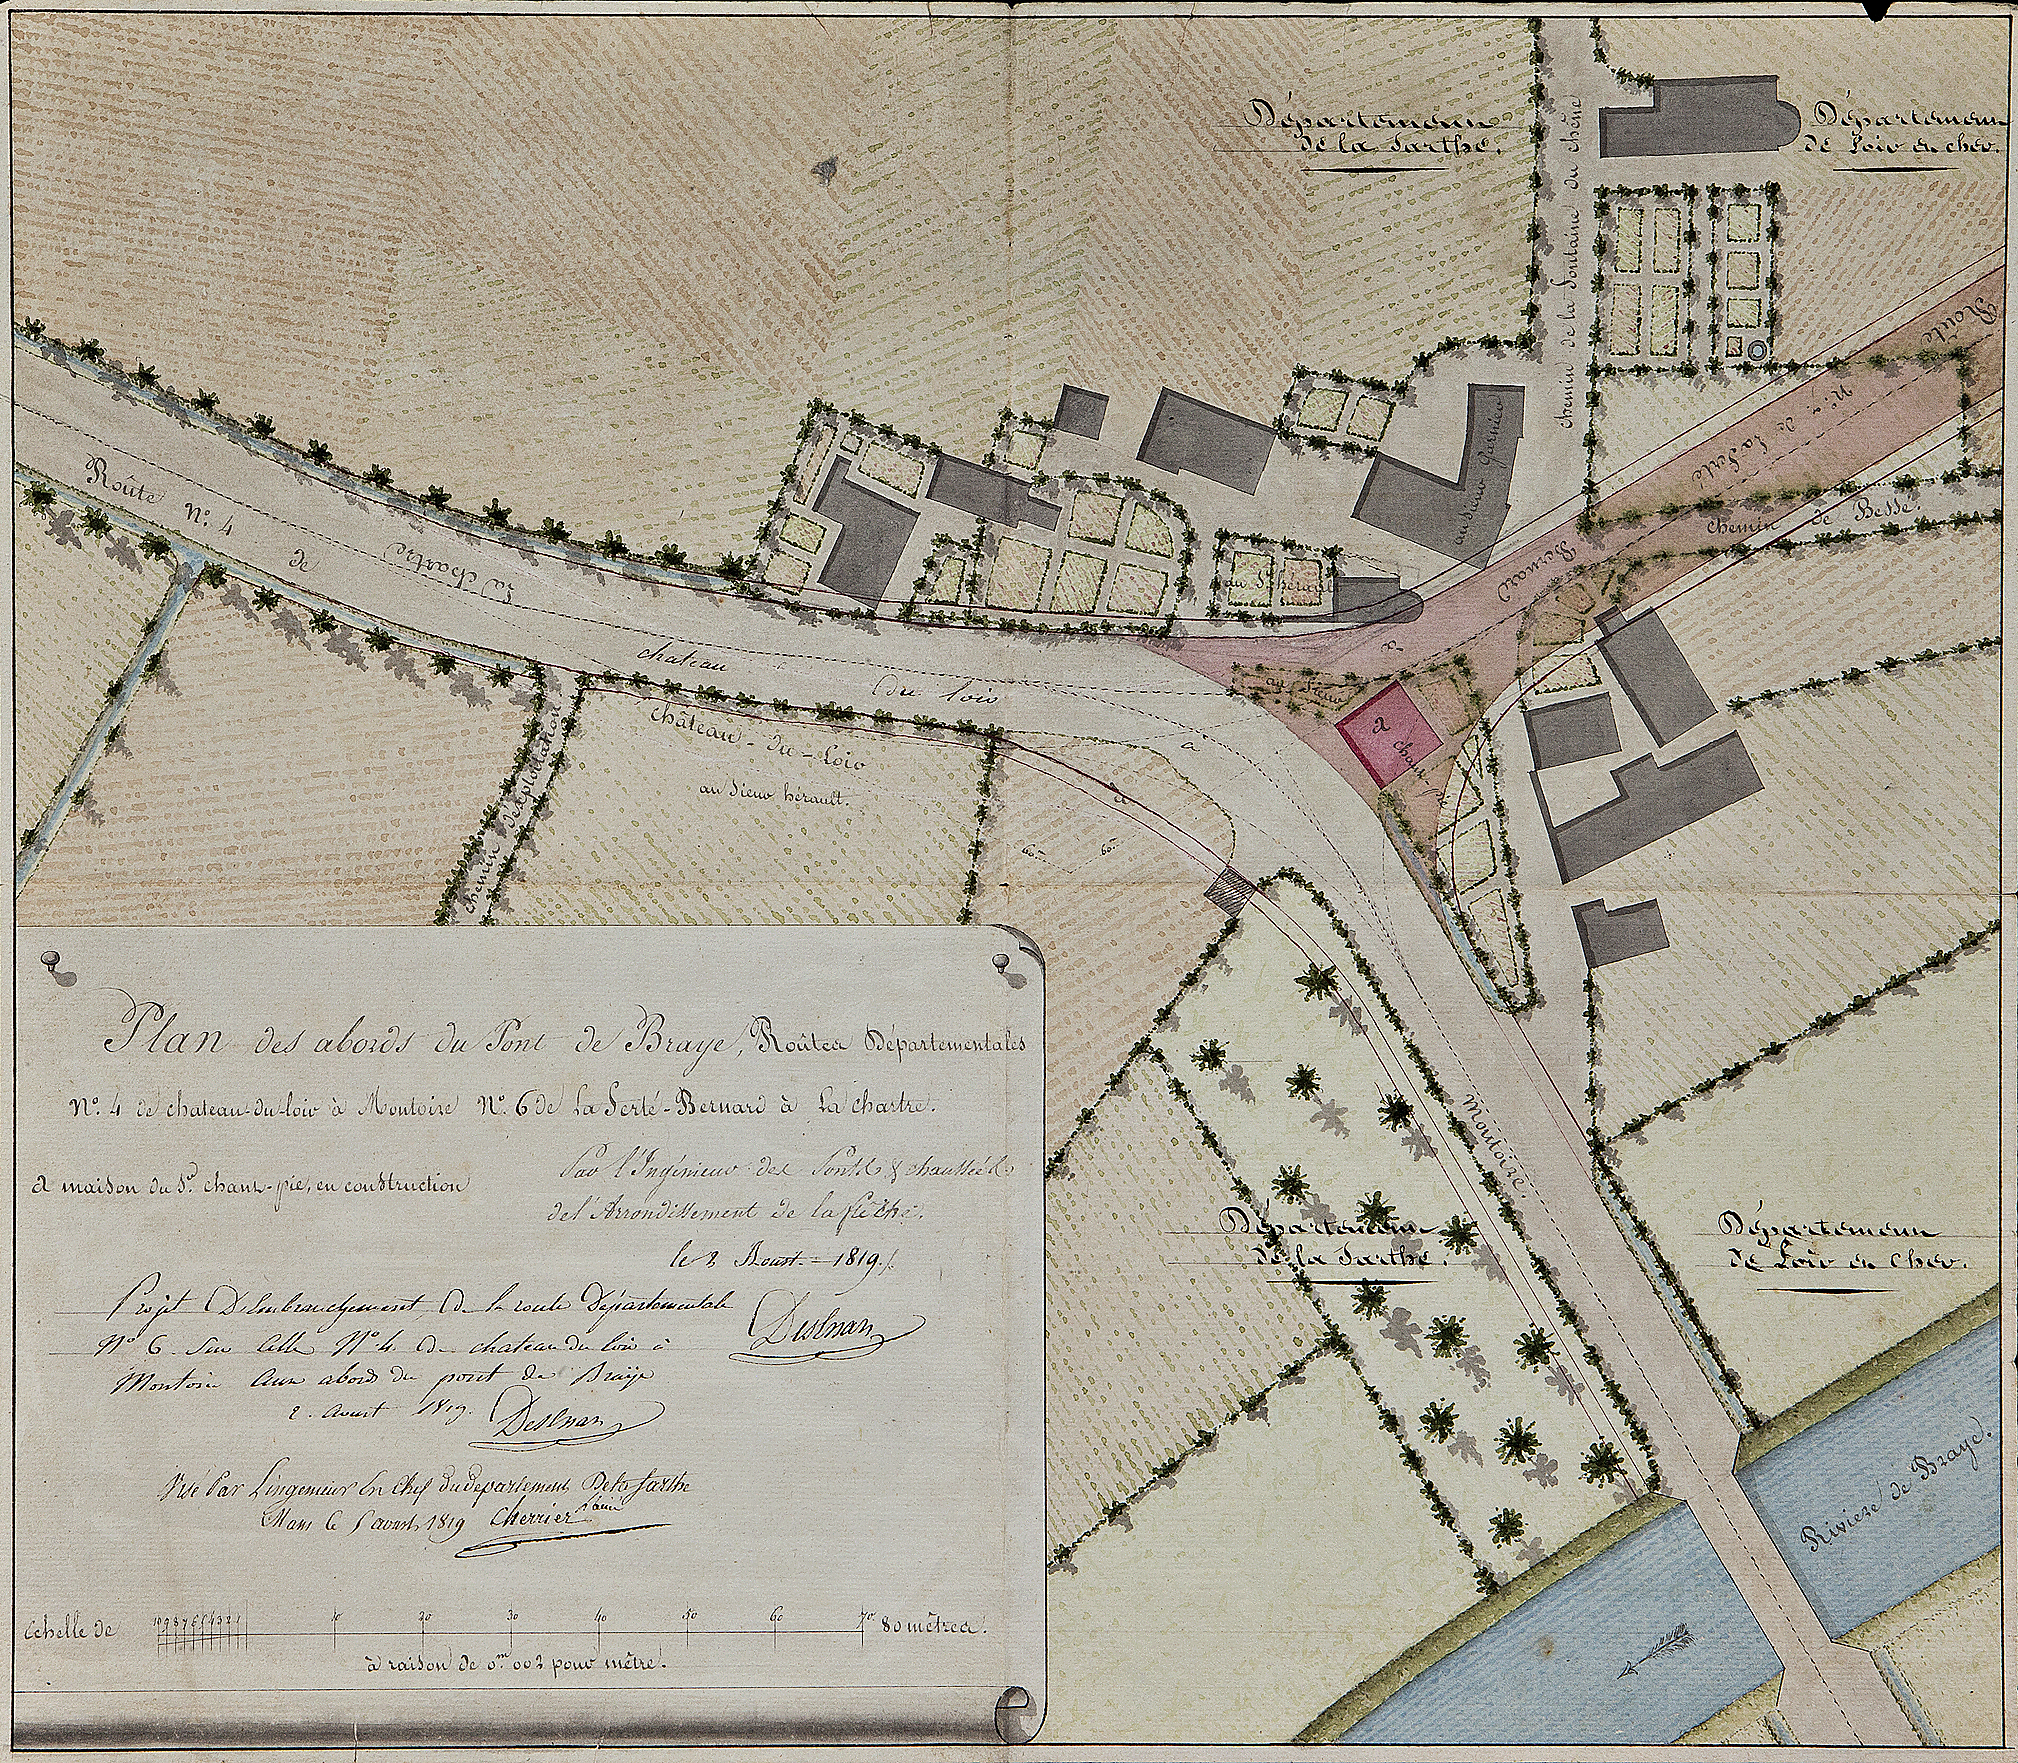 Département
de la Sarthe.
Département
de Loir en cher.
chemin de la fontaine du chêne
Route
N°.
de La Ferté
Bernard
à
chemin de Besse.
au Sieur Garnier
au Sr. hérault
Route N°. 4 de
La chartre
chateau du loir
château-du-Loir
au Sieur hérault.
chemin d'exploitation
au Sieur
A
chant-pie
à
à
60m
60m
Montoire.
Département
de la Sarthe.
Département
de Loir en Cher.
Riviere de Braye.
Plan des abords du Pont de Braye, Routes Départementales
N°. 4 de chateau-du-loir à Montoire N°. 6 de La Ferté-Bernard à La chartre.
A maison du Sr. chant-pie, en construction
Par l'Ingénieur des Ponts & chaussées
de l'Arrondissement de la flêche.
le 2 Aoust 1819.
Projet D'Embranchement De la route Départementale
N° 6 Sur Celle N° 4 De chateau du loir à
Montoire Aux abords du pont de Braye
2. Aoust 1819.
Visé Par L'ingenieur En Chef Du departement De la Sarthe
Mans le 5 aoust 1819 Cherrier
Echelle de 10 9 8 7 6 5 4 3 2 1 10 20 30 40 50 60 70 80 mètres.
à raison de 0m 002 pour mètre.